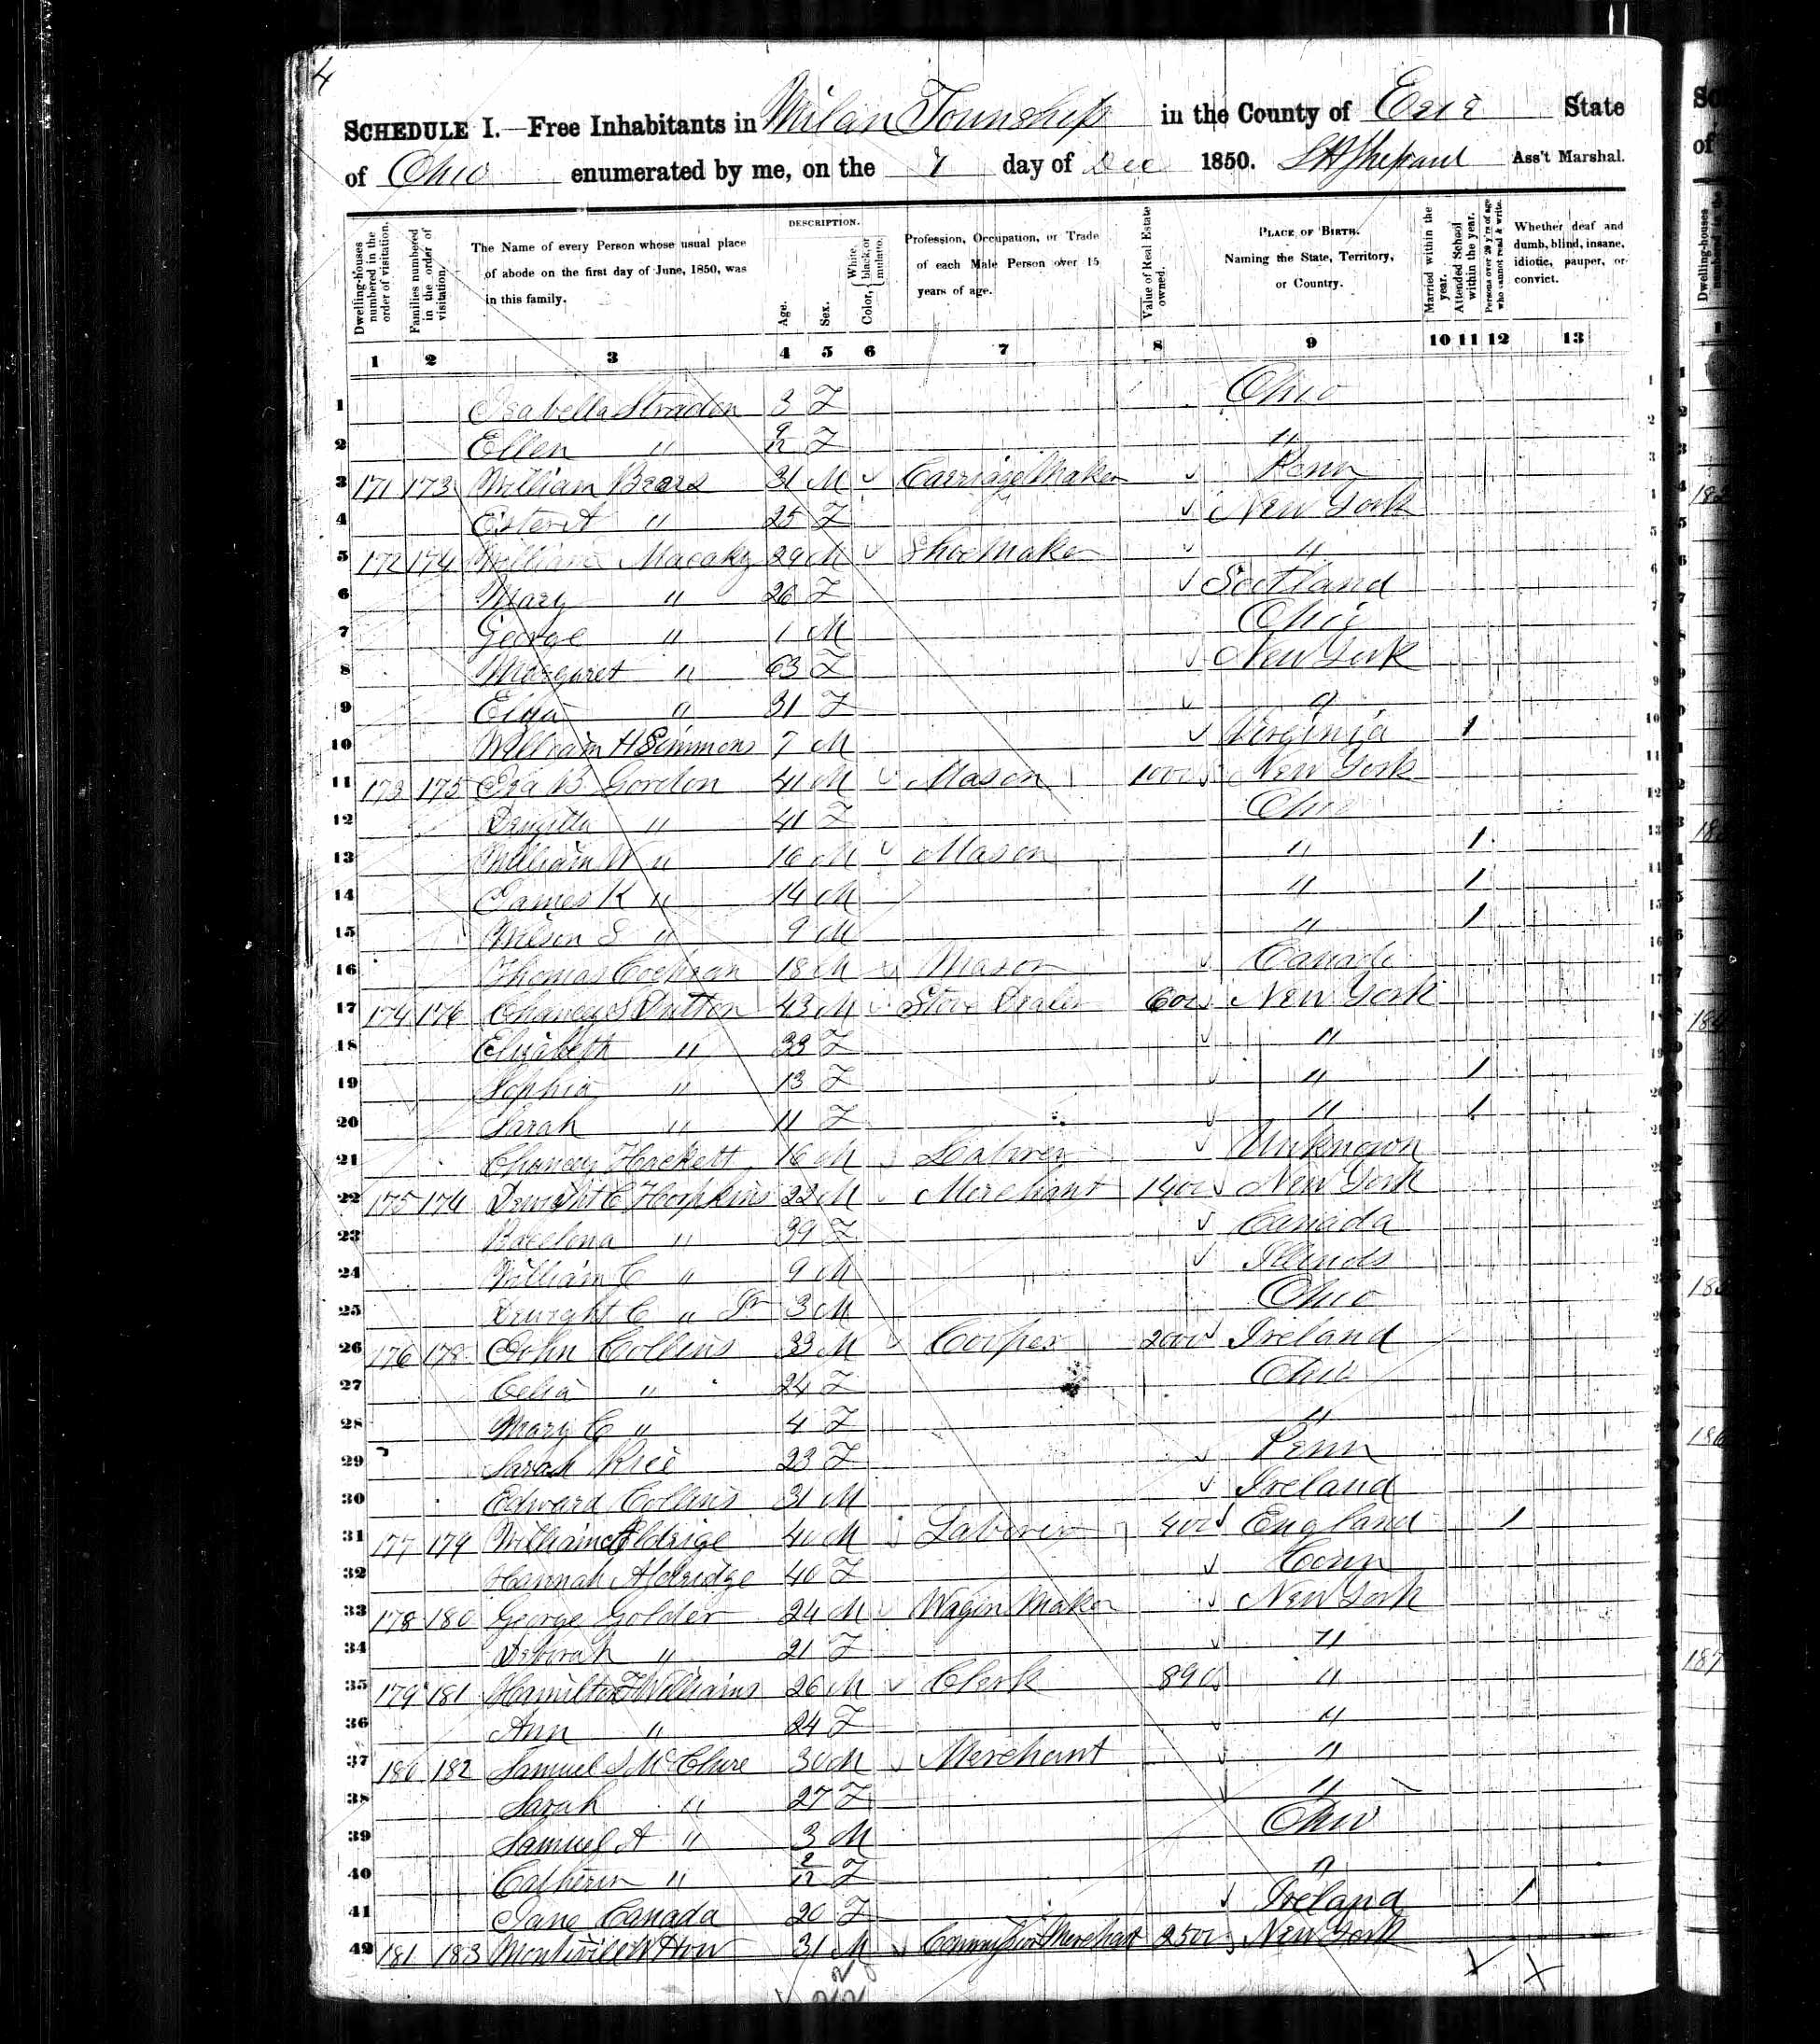 4
SCHEDULE I.—Free Inhabitants in Milan Township in the County of Erie State
of Ohio enumerated by me, on the 7 day of Dec 1850. Ass't Marshal.
DESCRIPTION.
Dwelling-houses numbered in the order of visitation.
Families numbered in the order of visitation.
The Name of every Person whose usual place of abode on the first day of June, 1850, was in this family.
Age.
Sex.
Color, { White, black, or mulatto.
Profession, Occupation, or Trade of each Male Person over 15 years of age.
Value of Real Estate owned.
PLACE OF BIRTH. Naming the State, Territory, or Country.
Married within the year.
Attended School within the year.
Persons over 20 y'rs of age who cannot read & write.
Whether deaf and dumb, blind, insane, idiotic, pauper, or convict.
1 2 3 4 5 6 7 8 9 10 11 12 13
1 Isabella 3 F Ohio
2 Ellen " 9/12 F "
3 171 173 William Bears 31 M Carriage Maker Penn
4 Ester A " 25 F New York
5 172 174 William 29 M Shoe Maker "
6 Mary " 26 F Scotland
7 George " 1 M Ohio
8 Margaret " 63 F New York
9 " 31 F "
10 William H Simmons 7 M Virginia 1
11 173 175 Ira B Gordon 41 M Mason 1000 New York
12 " 41 F Ohio
13 William W " 16 M Mason " 1
14 James K " 14 M " 1
15 Wilson S " 9 M " 1
16 Thomas Cochran 18 M Mason Canada
17 174 176 Chancy S Dutton 43 M Stove Dealer 600 New York
18 Elizabeth " 33 F "
19 Sophia " 13 F " 1
20 Sarah " 11 F " 1
21 Chancy Hackett 16 M Laborer Unknown
22 175 174 Dwight C Hopkins 22 M Merchant 1400 New York
23 " 39 F Canada
24 William C " 9 M Illinois
25 Dwight C " Jr 3 M Ohio
26 176 178 John Collins 33 M Cooper 2000 Ireland
27 Celia " 24 F Ohio
28 Mary C " 4 F "
29 Sarah Rice 23 F Penn
30 Edward Collins 31 M Ireland
31 177 179 William Aldrige 40 M Laborer 400 England 1
32 Hannah Aldridge 40 F Conn
33 178 180 George Golder 24 M Wagin Maker New York
34 Deborah " 21 F "
35 179 181 Hamilton F Williams 26 M Clerk 890 "
36 Ann " 24 F "
37 180 182 Samuel S McClure 30 M Merchant "
38 Sarah " 27 F "
39 Samuel A " 3 M Ohio
40 Catherin " 2/12 F "
41 Jane Canada 20 F Ireland 1
42 181 183 31 M Commission Merchant 2500 New York